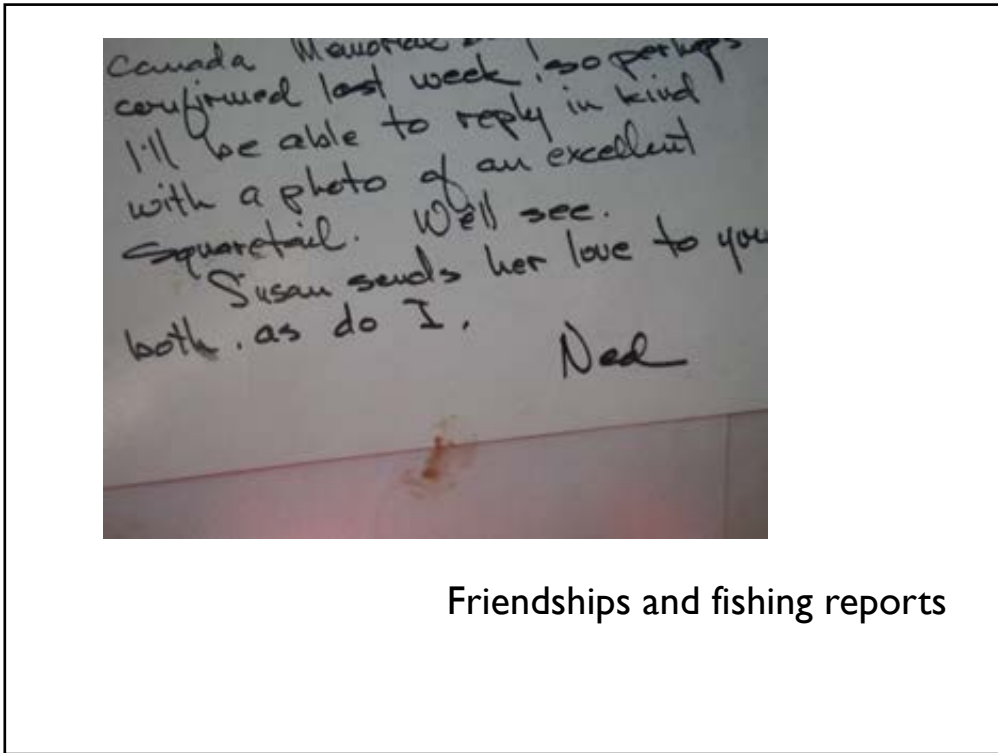 Canada Memorial
confirmed last week, so perhaps
I'll be able to reply in kind
with a photo of an excellent
Squaretail. We'll see.
Susan sends her love to you
both, as do I.
Ned
Friendships and fishing reports